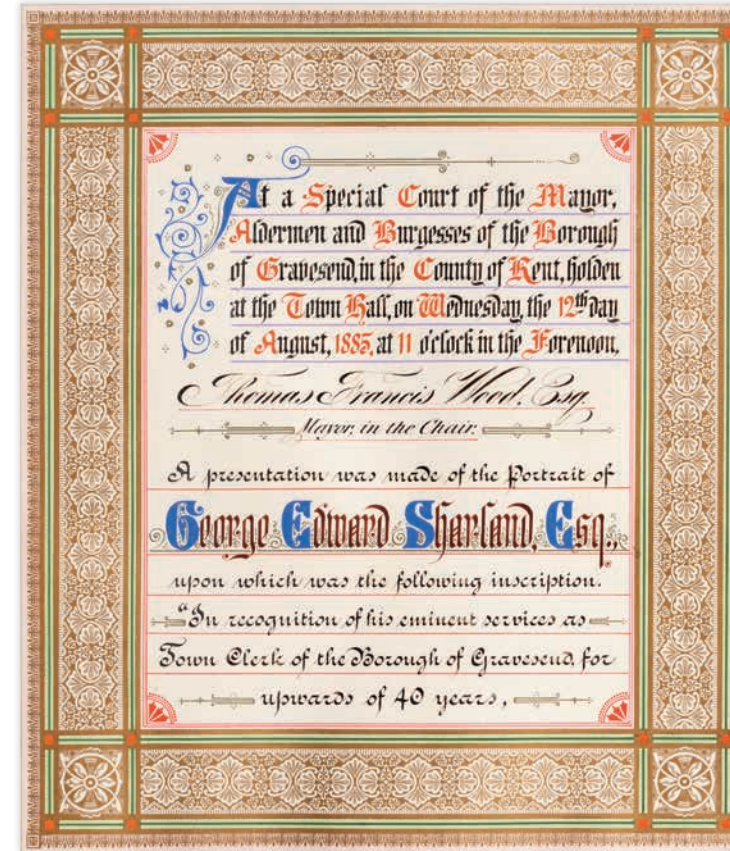 At a Special Court of the Mayor,
Aldermen and Burgesses of the Borough
of Gravesend, in the County of Kent, holden
at the Town Hall, on Wednesday, the 12th Day
of August, 1885, at 11 o'clock in the Forenoon,
Thomas Francis Wood, Esq.
Mayor, in the Chair.
A presentation was made of the Portrait of
George Edward Sharland, Esq.,
upon which was the following inscription.
"In recognition of his eminent services as
Town Clerk of the Borough of Gravesend, for
upwards of 40 years,